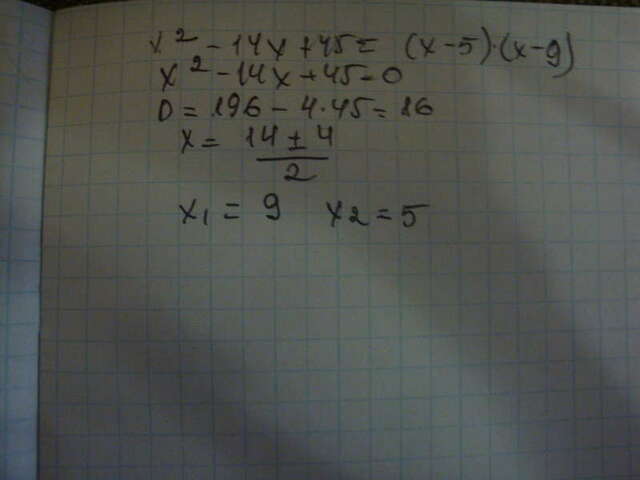 x² - 14x + 45 = (x - 5)·(x - 9)
x² - 14x + 45 = 0
D = 196 - 4·45 = 16
x = (14 ± 4)/2
x₁ = 9 x₂ = 5